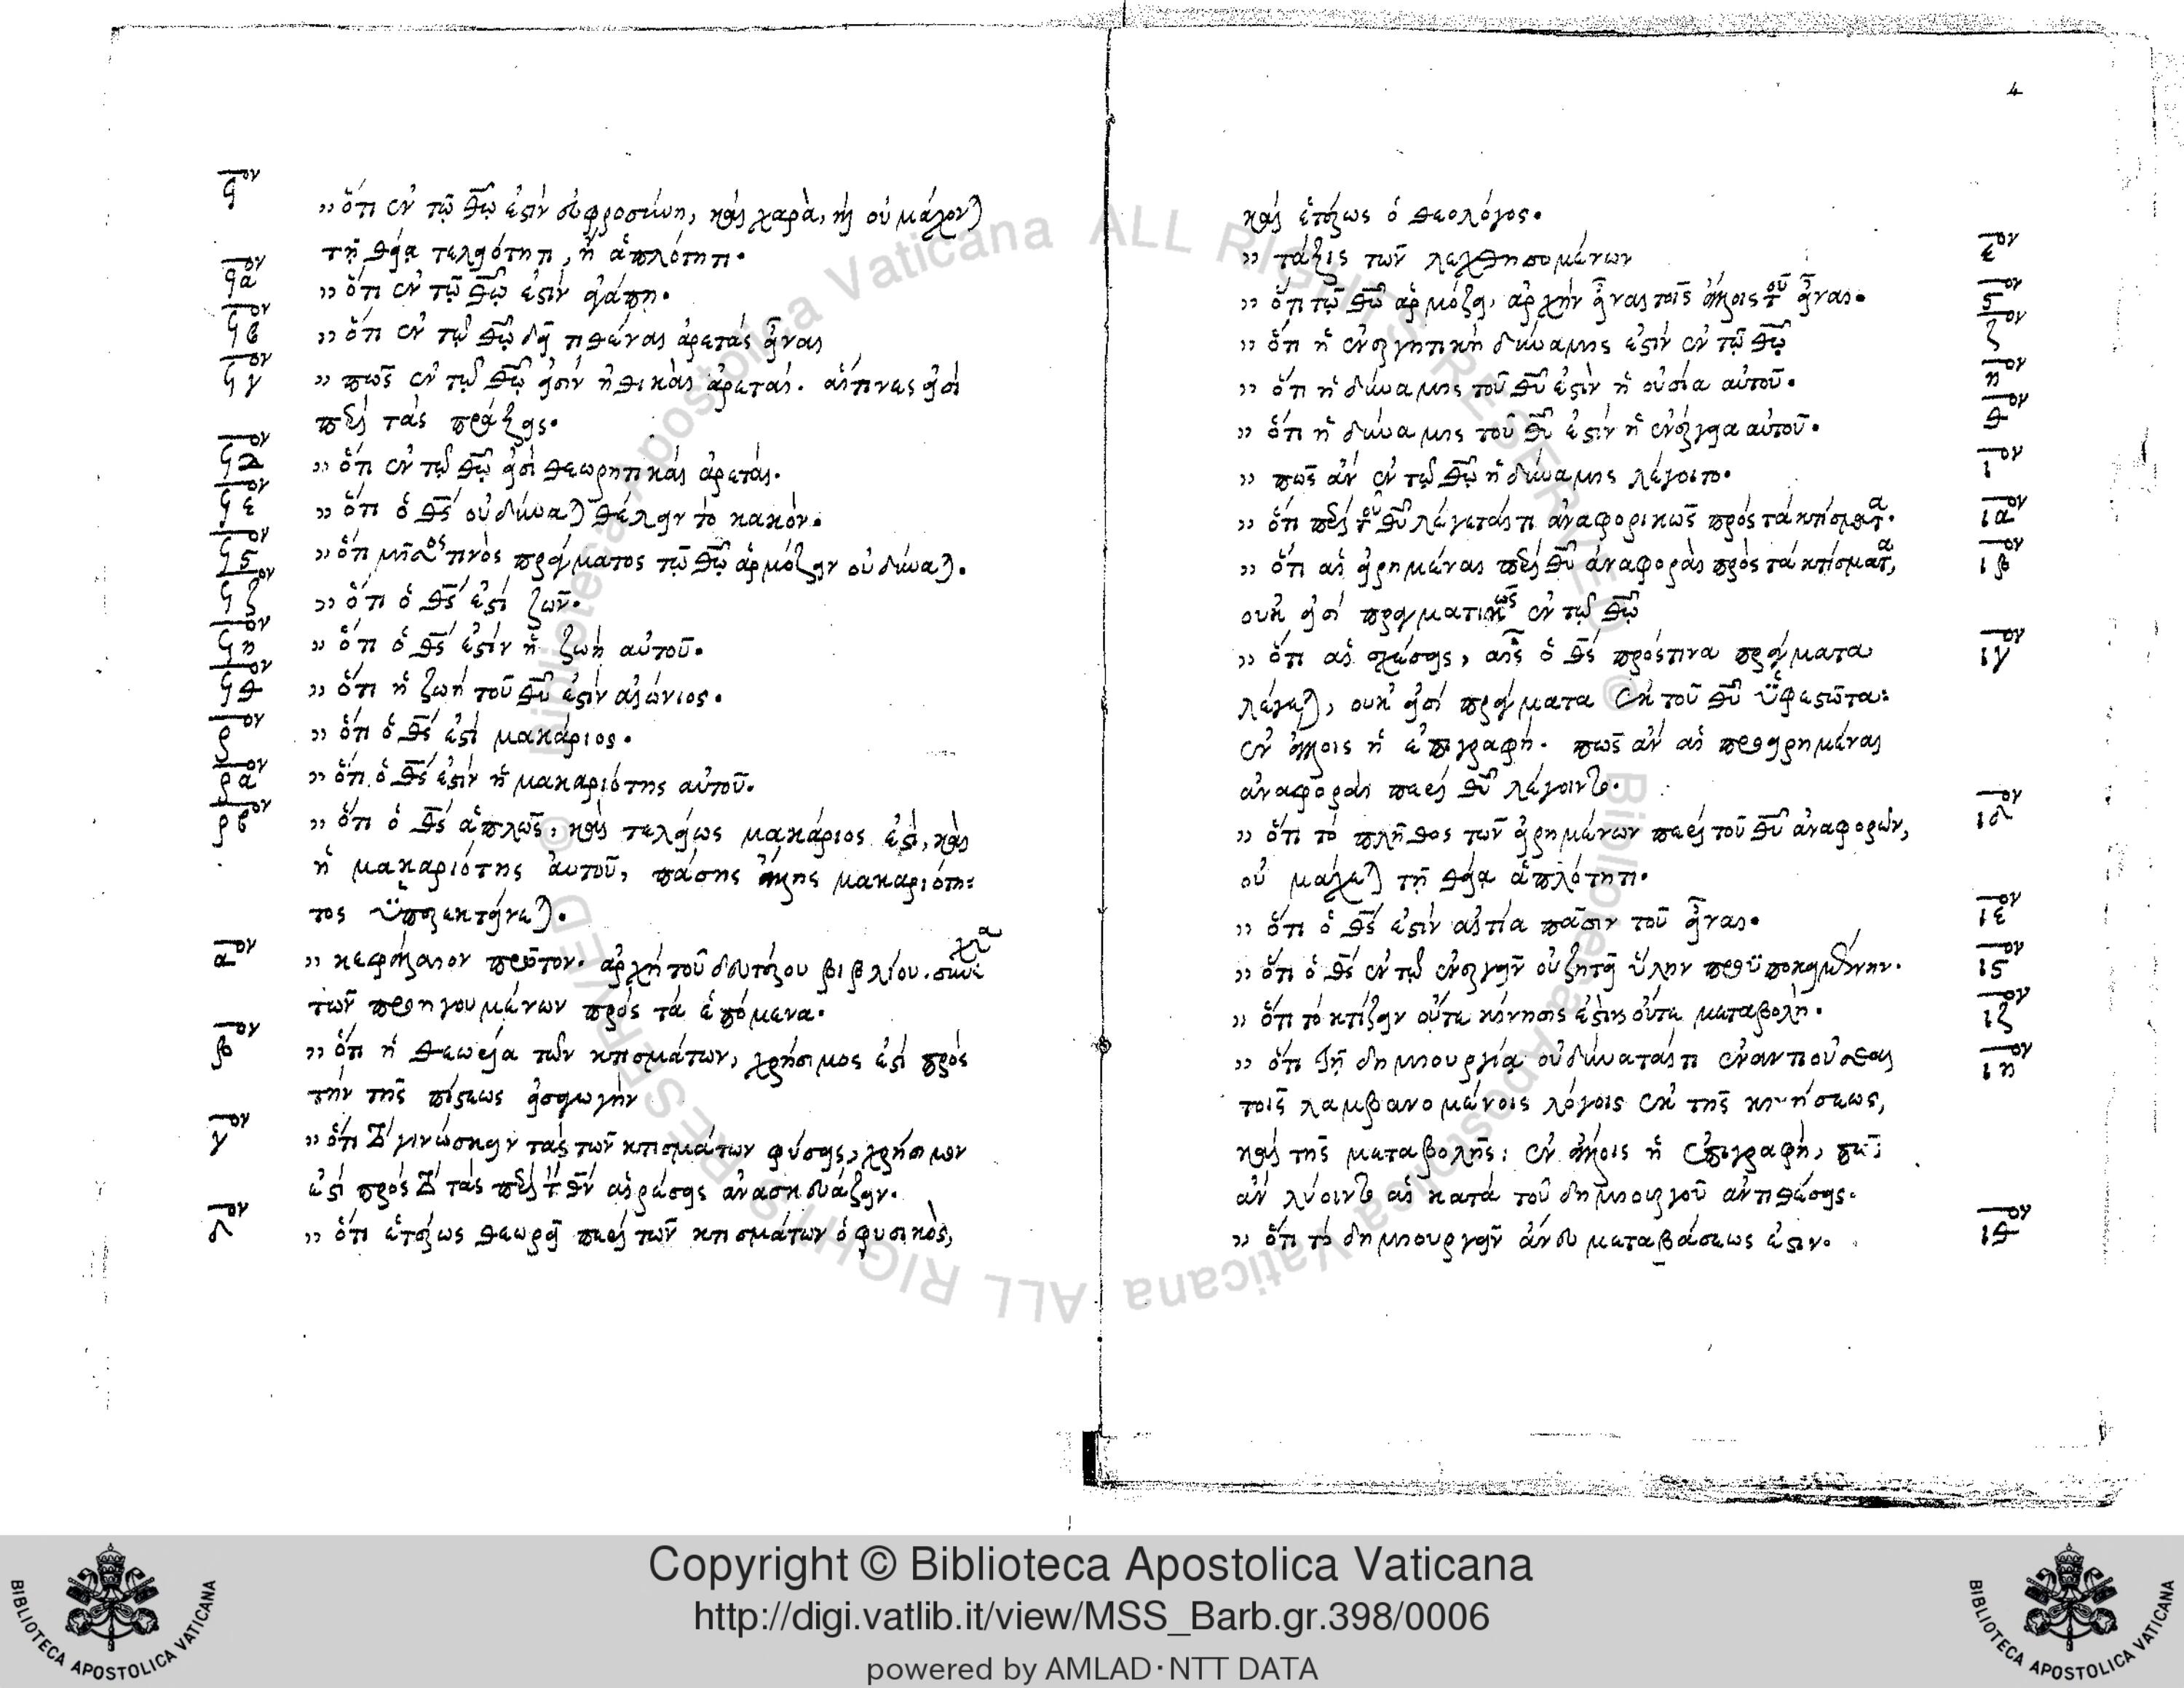 ϟον
» ὅτι ἐν τῶ θῶ ἐστὶν εὐφροσύνη, καὶ χαρὰ, καὶ οὐ μάχονται
τῆ θεία τελειότητι, ἢ ἁπλότητι.
ϟαον
» ὅτι ἐν τῶ θῶ ἐστὶν ἀγάπη.
ϟβον
» ὅτι ἐν τῶ θῶ δεῖ τιθέναι ἀρετὰς εἶναι
ϟγον
» πῶς ἐν τῶ θῶ εἰσὶν ἠθικαὶ ἀρεταί. αἵτινες εἰσὶ
περὶ τὰς πράξεις.
ϟδον
» ὅτι ἐν τῶ θῶ εἰσὶ θεωρητικαὶ ἀρεταί.
ϟεον
» ὅτι ὁ θς οὐ δύναται θέλειν τὸ κακόν.
ϟςον
» ὅτι μῖσος τινὸς πράγματος τῶ θῶ ἁρμόζειν οὐ δύναται.
ϟζον
» ὅτι ὁ θς ἐστὶ ζῶν.
ϟηον
» ὅτι ὁ θς ἐστὶν ἡ ζωὴ αὐτοῦ.
ϟθον
» ὅτι ἡ ζωὴ τοῦ θυ ἐστὶν αἰώνιος.
ρον
» ὅτι ὁ θς ἐστὶ μακάριος.
ραον
» ὅτι ὁ θς ἐστὶν ἡ μακαριότης αὐτοῦ.
ρβον
» ὅτι ὁ θς ἁπλῶς, καὶ τελείως μακάριος ἐστὶ, καὶ
ἡ μακαριότης αὐτοῦ, πάσης ἄλλης μακαριότη-
τος ὑπερεκτείνεται.
αον
» κεφάλαιον πρῶτον. ἀρχὴ τοῦ δευτέρου βιβλίου. συνέχεια
τῶν προηγουμένων πρὸς τὰ ἑπόμενα.
βον
» ὅτι ἡ θεωρία τῶν κτισμάτων, χρήσιμος ἐστὶ πρὸς
τὴν τῆς πίστεως εἰσαγωγὴν
γον
» ὅτι τὸ γινώσκειν τὰς τῶν κτισμάτων φύσεις, χρήσιμον
ἐστὶ πρὸς τὸ τὰς περὶ τὸν θν αἱρέσεις ἀνασκευάζειν.
δον
» ὅτι ἑτέρως θεωρεῖ περὶ τῶν κτισμάτων ὁ φυσικὸς,
4
καὶ ἑτέρως ὁ θεολόγος.
» τάξις τῶν λεχθησομένων
εον
» ὅτι τῶ θῶ ἁρμόζει ἀρχὴν εἶναι τοῖς ἄλλοις τοῦ εἶναι.
ςον
» ὅτι ἡ ἐνεργητικὴ δύναμις ἐστὶν ἐν τῶ θῶ
ζον
» ὅτι ἡ δύναμις τοῦ θυ ἐστὶν ἡ οὐσία αὐτοῦ.
ηον
» ὅτι ἡ δύναμις τοῦ θυ ἐστὶν ἡ ἐνέργεια αὐτοῦ.
θον
» πῶς ἂν ἐν τῶ θῶ ἡ δύναμις λέγοιτο.
ιον
» ὅτι περὶ τοῦ θυ λέγεταί τι ἀναφορικῶς πρὸς τὰ κτίσματα.
ιαον
» ὅτι αἱ εἰρημέναι περὶ θυ ἀναφοραὶ πρὸς τὰ κτίσματα,
ιβον
οὐκ εἰσὶ πραγματικῶς ἐν τῶ θῶ
» ὅτι αἱ σχέσεις, αἷς ὁ θς πρός τινα πράγματα
ιγον
λέγεται, οὐκ εἰσὶ πράγματα ἐκ τοῦ θυ ὑφεστῶτα:
ἐν ἄλλοις ἡ ἐπιγραφή. πῶς ἂν αἱ προειρημέναι
ἀναφοραὶ περὶ θυ λέγοιντο.
» ὅτι τὸ πλῆθος τῶν εἰρημένων περὶ τοῦ θυ ἀναφορῶν,
ιδον
οὐ μάχεται τῆ θεία ἁπλότητι.
» ὅτι ὁ θς ἐστὶν αἰτία πᾶσιν τοῦ εἶναι.
ιεον
» ὅτι ὁ θς ἐν τῶ ἐνεργεῖν οὐ ζητεῖ ὕλην προϋποκειμένην.
ιςον
» ὅτι τὸ κτίζειν οὔτε κίνησις ἐστὶν οὔτε μεταβολή.
ιζον
» ὅτι τῆ δημιουργία οὐ δύναταί τι ἐναντιοῦσθαι
ιηον
τοῖς λαμβανομένοις λόγοις ἐκ τῆς κινήσεως,
καὶ τῆς μεταβολῆς: ἐν ἄλλοις ἡ ἐπιγραφή, πῶς
ἂν λύοιντο αἱ κατὰ τοῦ δημιουργοῦ ἀντιθέσεις.
» ὅτι τὸ δημιουργεῖν ἄνευ μεταβάσεως ἐστιν.
ιθον
Copyright © Biblioteca Apostolica Vaticana
http://digi.vatlib.it/view/MSS_Barb.gr.398/0006
powered by AMLAD·NTT DATA
BIBLIOTECA APOSTOLICA VATICANA
BIBLIOTECA APOSTOLICA VATICANA
Biblioteca Apostolica Vaticana ALL RIGHTS RESERVED ©
Biblioteca Apostolica Vaticana ALL RIGHTS RESERVED ©